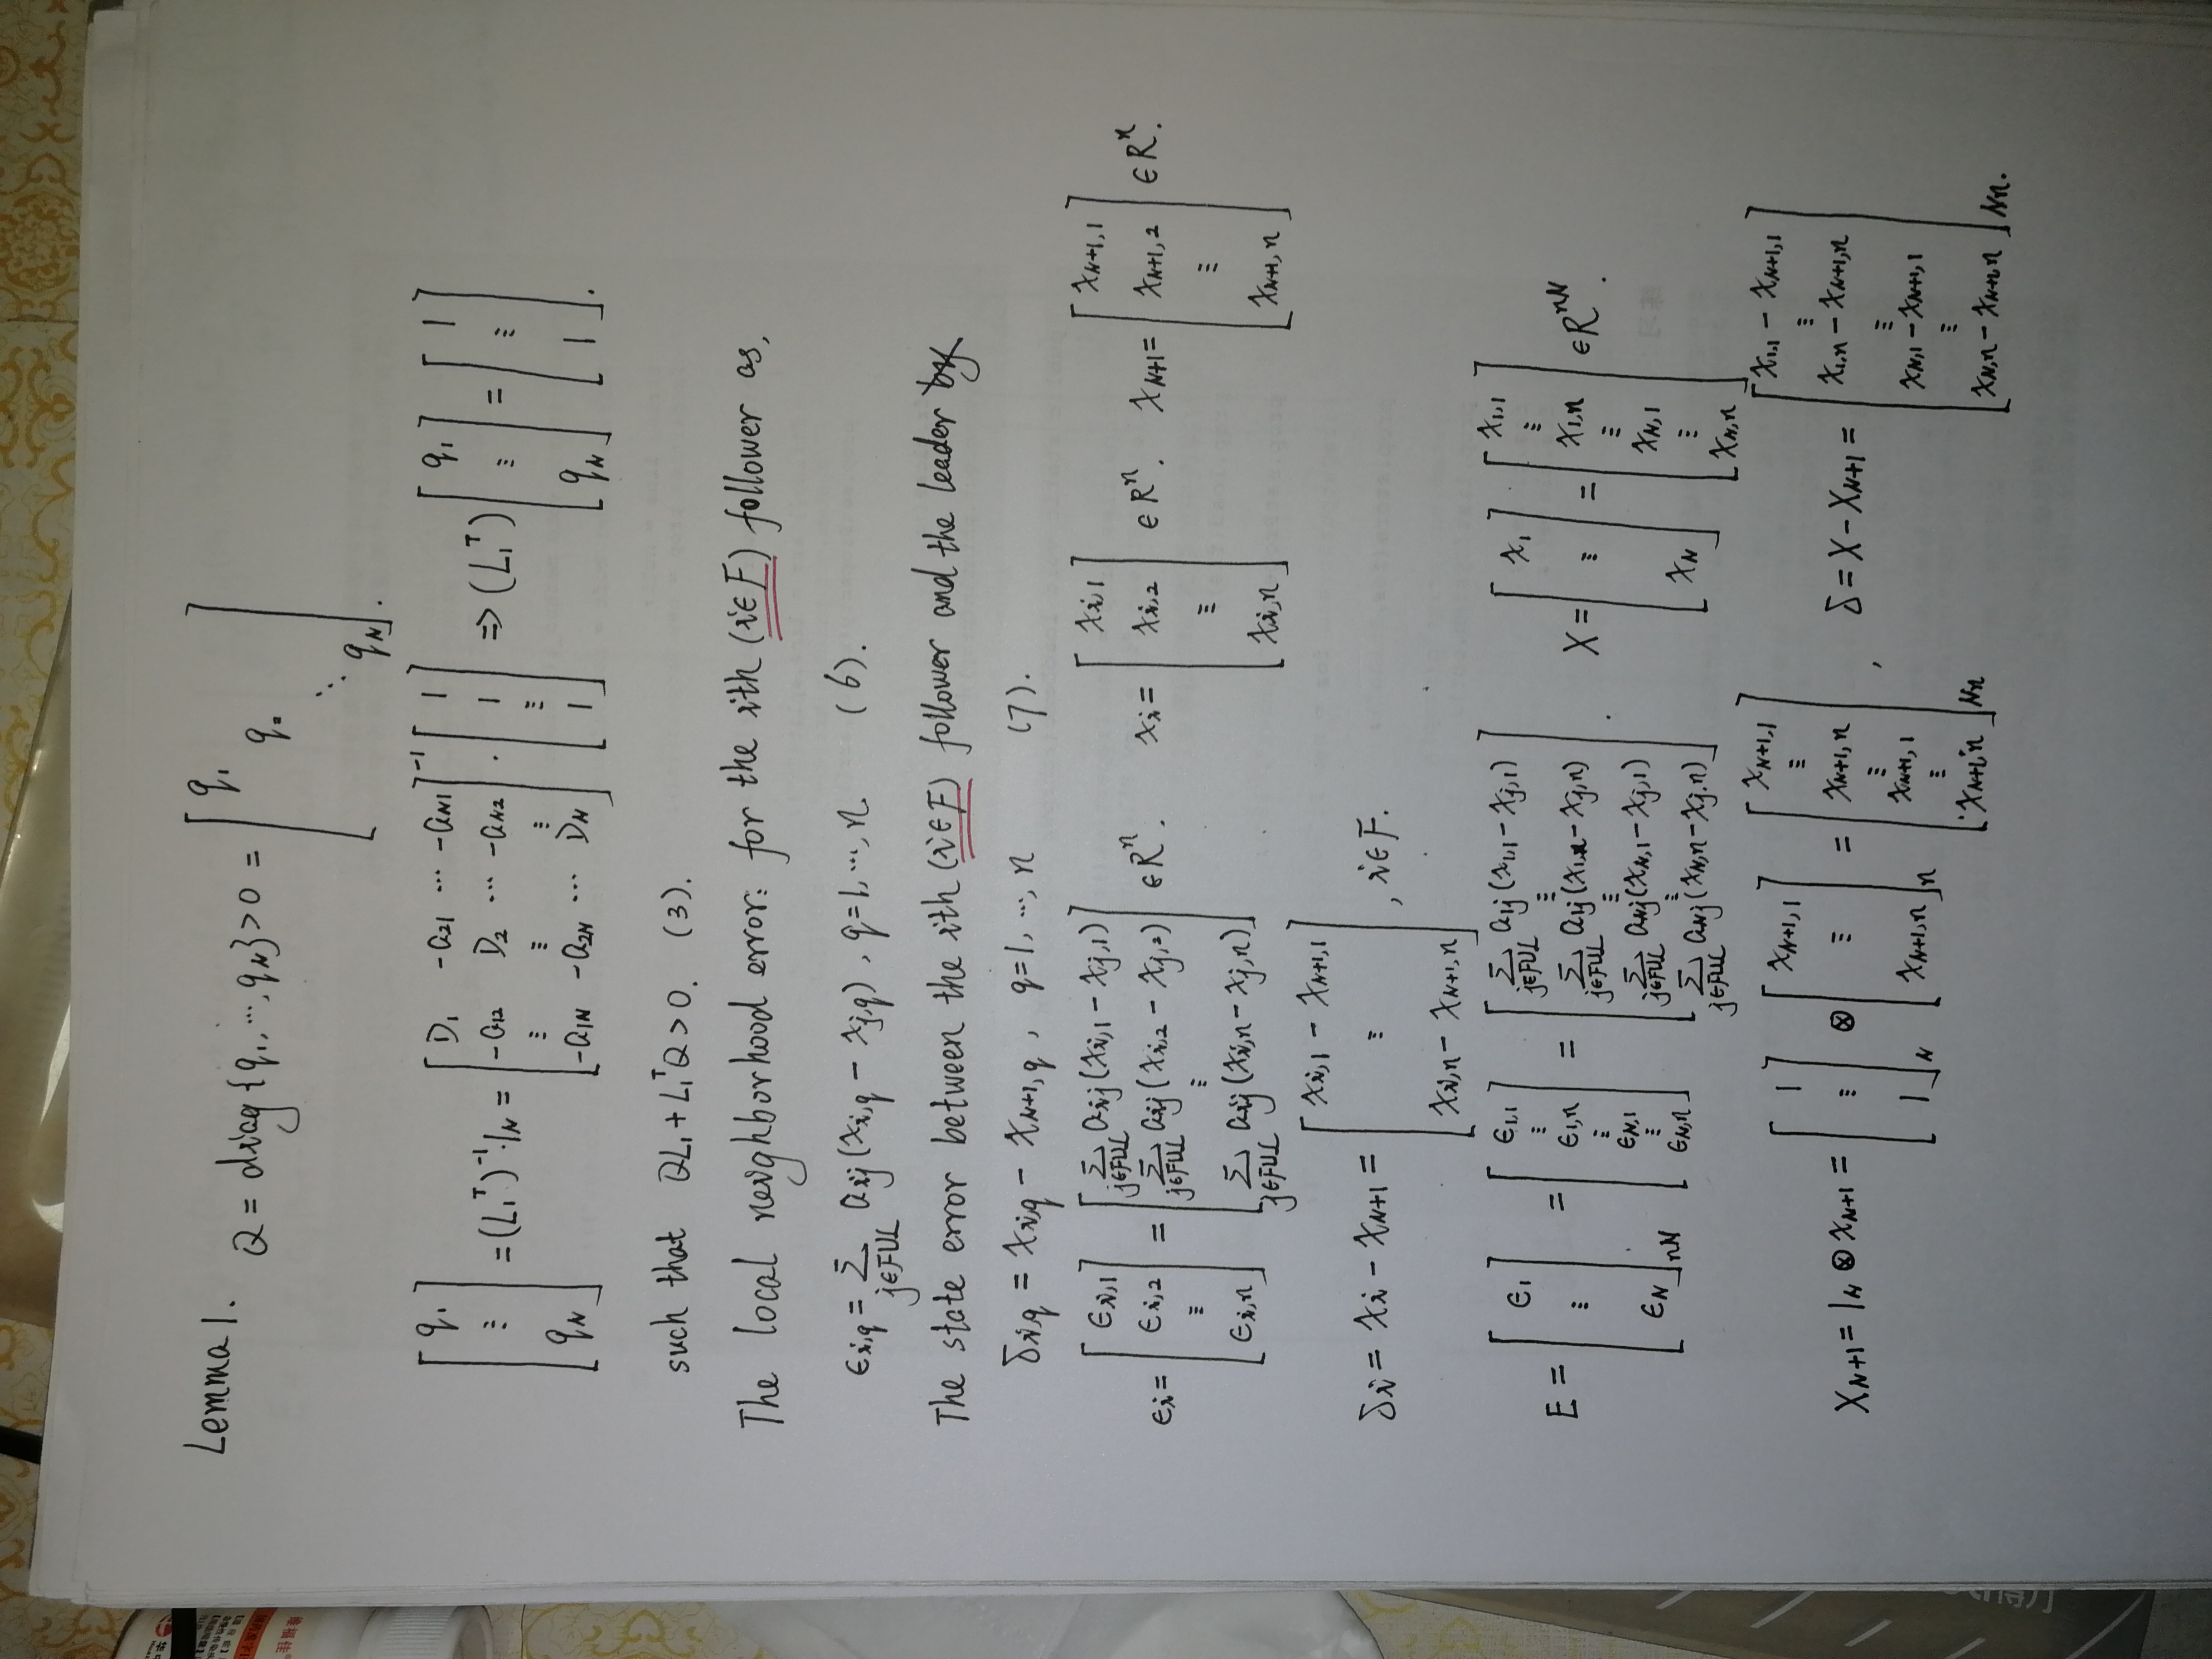 Lemma 1.
Q = diag{q₁, ⋯, q_N} > 0 = [q₁ q₂ ⋱ q_N].
[q₁ ⋮ q_N] = (L₁ᵀ)⁻¹·1_N = [D₁ -a₂₁ ⋯ -a_N1; -a₁₂ D₂ ⋯ -a_N2; ⋮ ⋮ ⋮; -a_1N -a_2N ⋯ D_N]⁻¹ · [1 1 ⋮ 1] ⇒ (L₁ᵀ) [q₁ ⋮ q_N] = [1 ⋮ 1].
such that QL₁ + L₁ᵀQ > 0. (3).
The local neighborhood error: for the ith (i∈F) follower as,
ϵi,q = Σ_{j∈F∪L} aij (xi,q − xj,q), q=1, ⋯, n. (6).
The state error between the ith (i∈F) follower and the leader by
δi,q = xi,q − x_{N+1},q, q=1, ⋯, n (7).
ϵi = [ϵi,1 ϵi,2 ⋮ ϵi,n] = [Σ_{j∈F∪L} aij (xi,1 − xj,1) Σ_{j∈F∪L} aij (xi,2 − xj,2) ⋮ Σ_{j∈F∪L} aij (xi,n − xj,n)] ∈ Rⁿ. xi = [xi,1 xi,2 ⋮ xi,n] ∈ Rⁿ. x_{N+1} = [x_{N+1},1 x_{N+1},2 ⋮ x_{N+1},n] ∈ Rⁿ.
δi = xi − x_{N+1} = [xi,1 − x_{N+1},1 ⋮ xi,n − x_{N+1},n], i∈F.
E = [ϵ₁ ⋮ ϵ_N]_{nN} = [ϵ1,1 ⋮ ϵ1,n ⋮ ϵN,1 ⋮ ϵN,n] = [Σ_{j∈F∪L} a1j (x1,1 − xj,1) ⋮ Σ_{j∈F∪L} a1j (x1,n − xj,n) ⋮ Σ_{j∈F∪L} aNj (xN,1 − xj,1) ⋮ Σ_{j∈F∪L} aNj (xN,n − xj,n)]. X = [x₁ ⋮ x_N] = [x1,1 ⋮ x1,n ⋮ xN,1 ⋮ xN,n] ∈ R^{nN}.
X_{N+1} = 1_N ⊗ x_{N+1} = [1 ⋮ 1]_N ⊗ [x_{N+1},1 ⋮ x_{N+1},n]_n = [x_{N+1},1 ⋮ x_{N+1},n ⋮ x_{N+1},1 ⋮ x_{N+1},n]_{Nn}, δ = X − X_{N+1} = [x1,1 − x_{N+1},1 ⋮ x1,n − x_{N+1},n ⋮ xN,1 − x_{N+1},1 ⋮ xN,n − x_{N+1},n]_{Nn}.